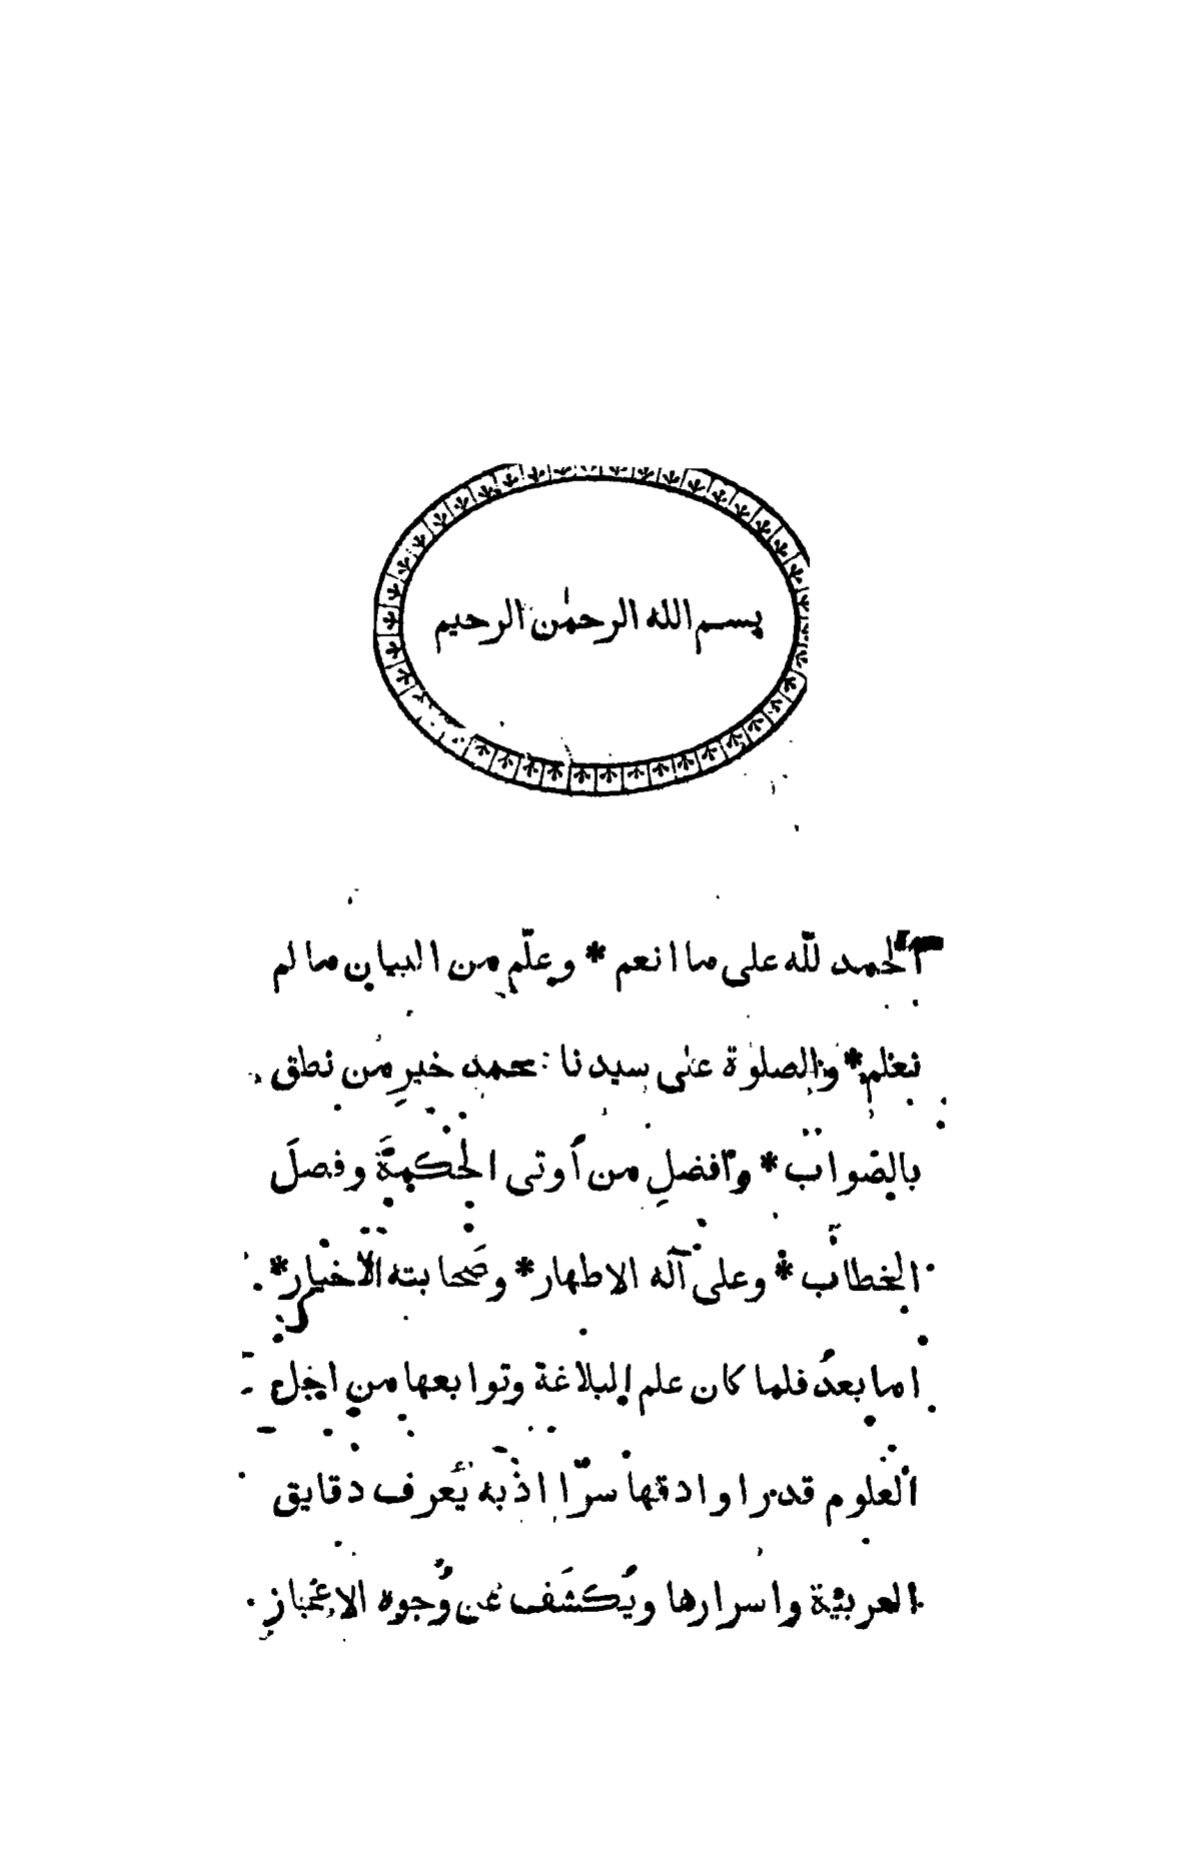 بسم الله الرحمٰن الرحيم
الحمد للّٰه على ما انعم * وعلّم من البيان ما لم
نعلم * والصلوٰة على سيدنا محمد خيرِ من نطق
بالصّواب * وافضلِ من أوتى الحكمةَ وفصلَ
الخطاب * وعلى آله الاطهار * وصَحابته الاخيار *
اما بعدُ فلما كان علم البلاغة وتوابعها من اجل
العلوم قدرا وادقها سرّا اذ به يُعرف دقايق
العربيّة واسرارها ويُكشَف عن وُجوه الاعجاز